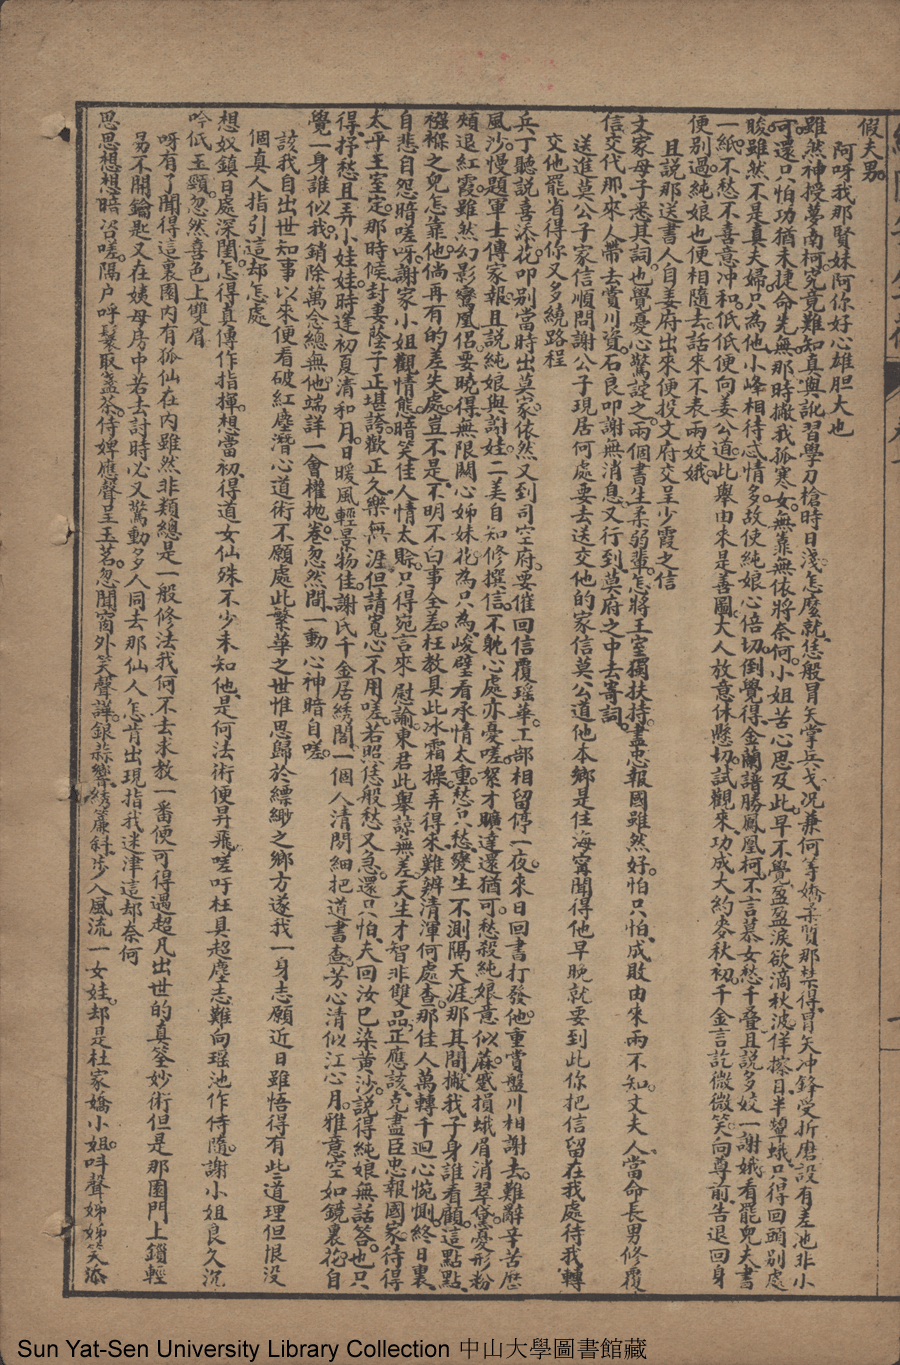 假夫男。
阿呀我那賢妹阿你好心雄胆大也
雖然神授夢南柯究竟難知真與訛習學刀槍時日淺怎麼就恁般冒失掌兵戈況兼何等嬌柔質那禁得冒矢冲鋒受折磨設有差池非小
可還只怕功猶未捷命先無那時撇我孤寒女無靠無依將奈何小姐苦心思及此早不覺盈盈淚欲滴秋波佯擦目半顰蛾只得回頭別處
睃雖然不是真夫婦只為他小峰相待忒情多故使純娘心倍切倒覺得金蘭譜勝鳳凰柯不言慕女愁千叠且說多姣一謝娥看罷兒夫書
一紙不愁不喜意冲和低低便向姜公道此舉由來是善圖大人放意休懸切試觀來功成大約麥秋初千金言訖微微笑向尊前告退回身
便別過純娘也便相隨去話來不表兩姣娥
且說那送書人自姜府出來便投文府交呈少霞之信
文家母子悉其詞也覺憂心驚詫之兩個書生柔弱輩怎將王室獨扶持盡忠報國雖然好怕只怕成敗由來兩不知文夫人當命長男修覆
信交代那來人帶去賞川資石良叩謝無消息又行到莫府之中去寄詞
送進莫公子家信順問謝公子現居何處要去送交他的家信莫公道他本鄉是住海寧聞得他早晚就要到此你把信留在我處待我轉
交他罷省得你又多繞路程
兵丁聽說喜添花叩別當時出莫家依然又到司空府要催回信覆瑶華工部相留停一夜來日回書打發他重賞盤川相謝去難辭辛苦歷
風沙慢題軍士傳家報且說純娘與謝娃二美自知修撰信不耽心處亦憂嗟絮才曠達還猶可愁殺純娘意似蔴蹙損蛾眉消翠黛憂形粉
頰退紅霞雖然幻影鸞凰侶要曉得無限關心姊妹花為只為峻璧看承情太重愁只愁變生不測隔天涯那其間撇我子身誰看顧這點點
襁褓之兒怎靠他倘再有的差失處豈不是不明不白事全差枉教具此冰霜操弄得來難辨清渾何處查那佳人萬轉千迴心惋惻終日裏
自悲自怨暗嗟呀謝家小姐觀情態暗笑佳人情太賒只得宛言來慰諭東君此舉諒無差天生才智非雙品正應該克盡臣忠報國家待得
太平王室定那時候封妻蔭子正堪誇歡正久樂無涯但請寬心不用嗟若照恁般愁又急還只怕夫回汝已染黄沙說得純娘無話答也只
得抒愁且弄小娃娃時逢初夏清和月日暖風輕景物佳謝氏千金居綉閣一個人清閒細把道書查芳心清似江心月雅意空如鏡裏花自
覺一身誰似我銷除萬念總無他端詳一會權抛卷忽然間一動心神暗自嗟
該我自出世知事以來便看破紅塵潛心道術不願處此繁華之世惟思歸於縹緲之鄉方遂我一身志願近日雖悟得有些道理但恨没
個真人指引這却怎處
想奴鎮日處深閨怎得真傳作指揮想當初得道女仙殊不少未知他是何法術便昇飛嗟吁枉具超塵志難向瑶池作侍隨謝小姐良久沉
吟低玉頸忽然喜色上雙眉
呀有了聞得這裏園内有狐仙在内雖然非類總是一般修法我何不去求教一番便可得過超凡出世的真筌妙術但是那園門上鎖輕
易不開鑰匙又在姨母房中若去討時必又驚動多人同去那仙人怎肯出現指我迷津這却奈何
思思想想暗咨嗟隔户呼鬟取盞茶侍婢應聲呈玉茗忽聞窗外笑聲譁銀蒜響綉簾斜步入風流一女娃却是杜家嬌小姐叫聲姊姊笑添
Sun Yat-Sen University Library Collection 中山大學圖書館藏